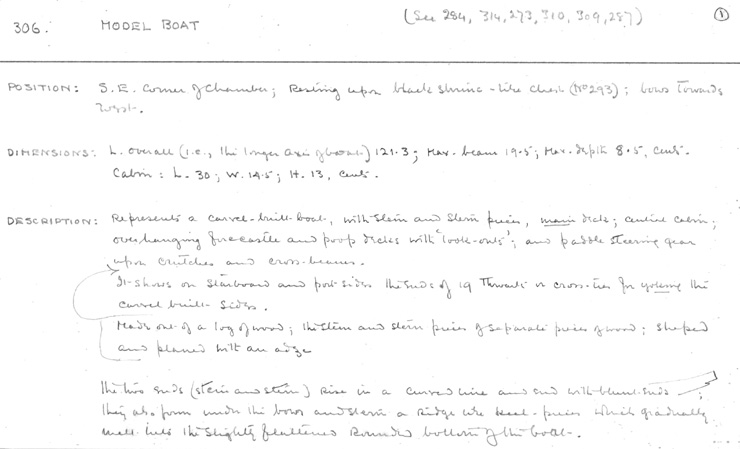 (See 284, 314, 273, 310, 309, 287) 1
306. MODEL BOAT
POSITION: S.E. Corner of Chamber; Resting upon black shrine-like chest (Nº 293); bows towards
West.
DIMENSIONS: L. overall (i.e., the longer axis of boat) 121.3; Max. beam 19.5; Max. depth 8.5, cents.
Cabin: L. 30; W. 14.5; H. 13, cents.
DESCRIPTION: Represents a carvel-built-boat, with stem and stern pieces, main deck; central cabin;
overhanging forecastle and poop decks with 'look-outs'; and paddle steering gear
upon crutches and cross-beams.
It shows on starboard and port sides the ends of 19 thwarts or cross-ties for yoking the
carvel built sides.
Made out of a log of wood; the stem and stern pieces of separate pieces of wood; shaped
and planed with an adze
The two ends (stem and stern) rise in a curved line and end with blunt ends
they also form under the bows and stern a ridge like keel-pieces which gradually
melt into the slightly flattened rounded bottom of the boat.